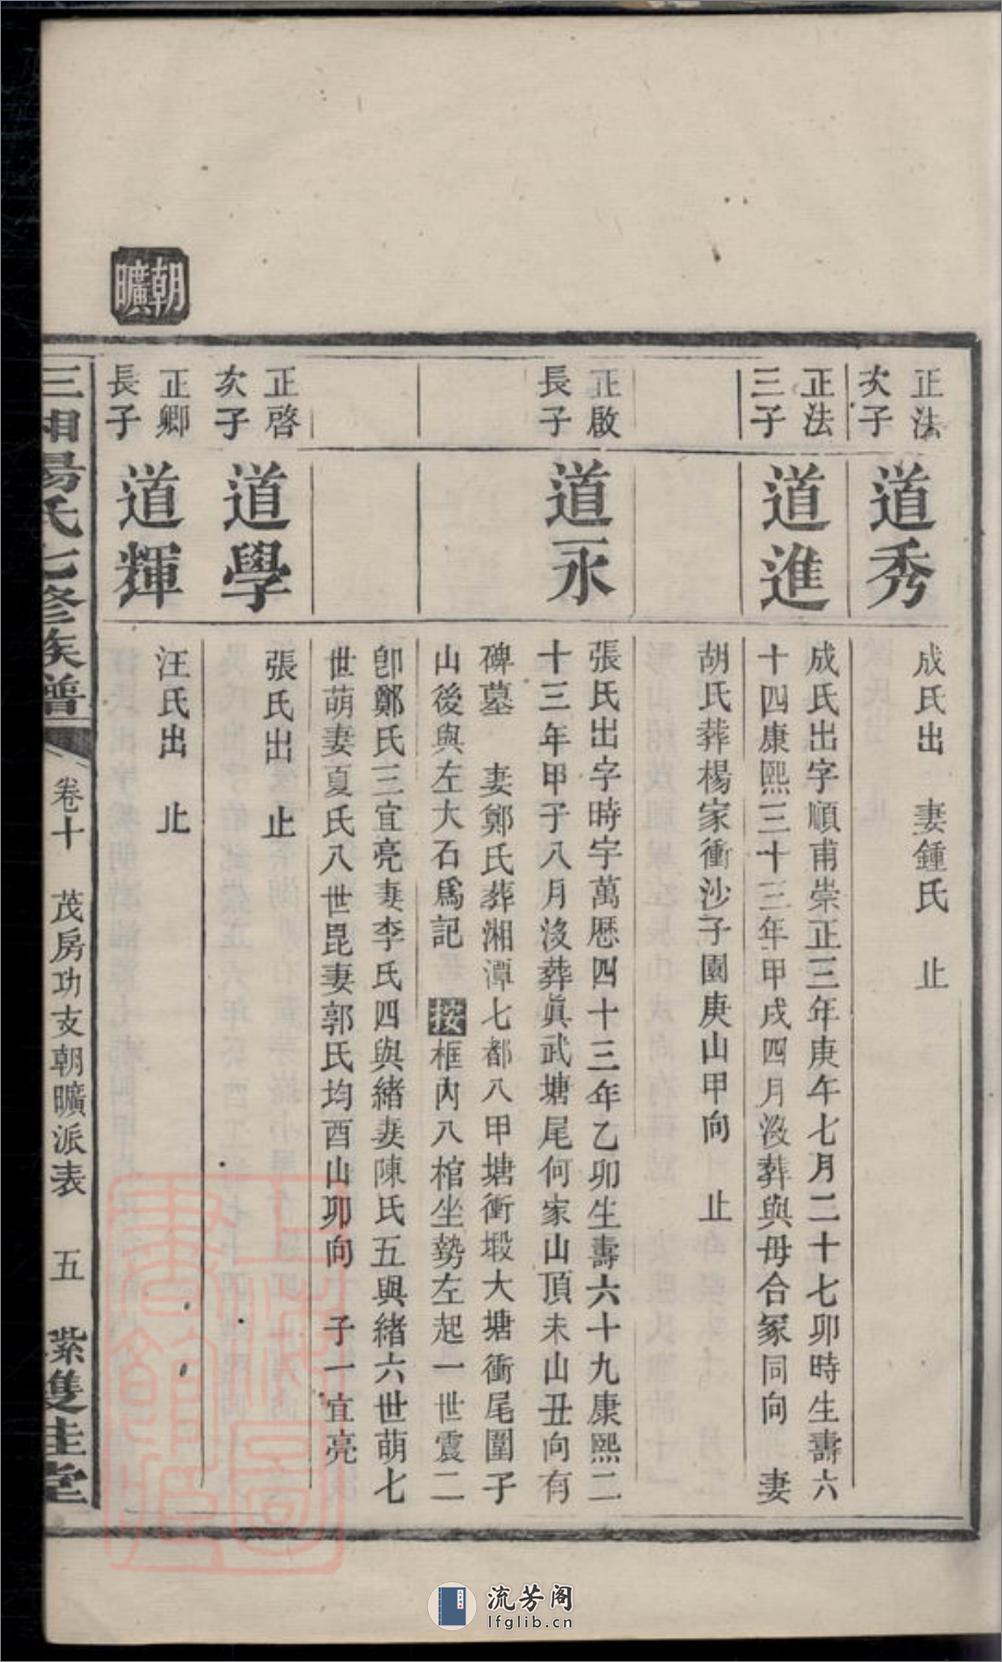 朝曠
正法
次子
道秀
成氏出 妻鍾氏 止
正法
三子
道進
成氏出字順甫崇正三年庚午七月二十七卯時生壽六
十四康熙三十三年甲戌四月沒葬與母合冢同向 妻
胡氏葬楊家衝沙子園庚山甲向 止
正啟
長子
道永
張氏出字時宇萬曆四十三年乙卯生壽六十九康熙二
十三年甲子八月沒葬眞武塘尾何家山頂未山丑向有
碑墓 妻鄭氏葬湘潭七都八甲塘衝塅大塘衝尾圍子
山後與左大石爲記 按框內八棺坐勢左起一世震二
卽鄭氏三宜亮妻李氏四與緒妻陳氏五興緒六世萌七
世萌妻夏氏八世昆妻郭氏均酉山卯向 子一宜亮
正啓
次子
道學
張氏出 止
正卿
長子
道輝
汪氏出 止
三湘湯氏七修族譜 卷十 茂房功支朝曠派表 五 紫雙桂堂
流芳阁
lfglib.cn